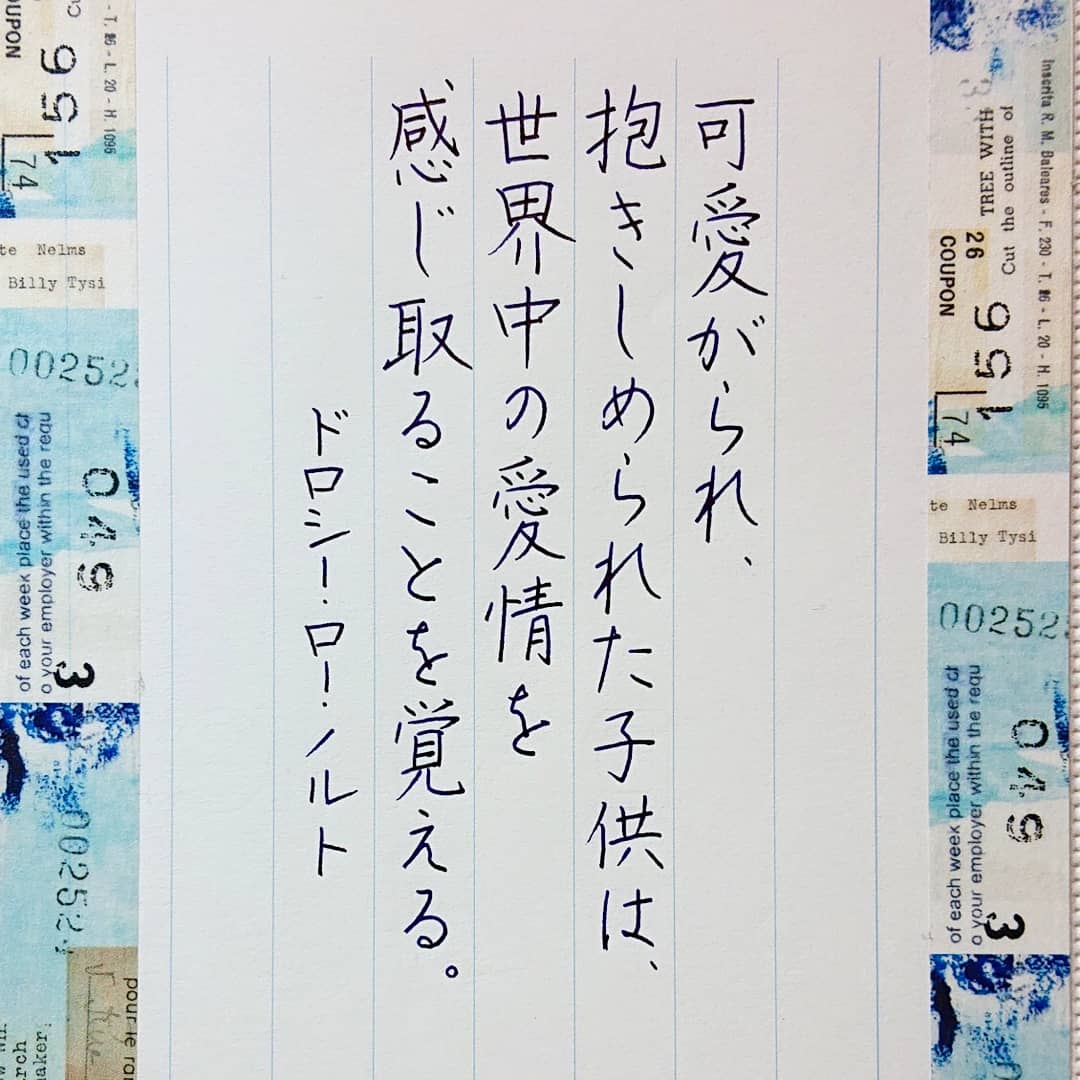 可愛がられ、
抱きしめられた子供は、
世界中の愛情を
感じ取ることを覚える。
ドロシー・ロー・ノルト
COUPON
1 5 6 6
74
- T. 26 - L. 20 - H. 1096
te Nelms
Billy Tysi
00252
of each week place the used
o your employer within the requ
049
3
002524
pour le
arch
aker
Inscrita R. M. Baleares - F. 230 - T. 26 - L. 20 - H. 1096
TREE WITH
Cut the outline of
26
COUPON
1 5 6 6
74
te Nelms
Billy Tysi
00252
of each week place the used
o your employer within the requ
049
3